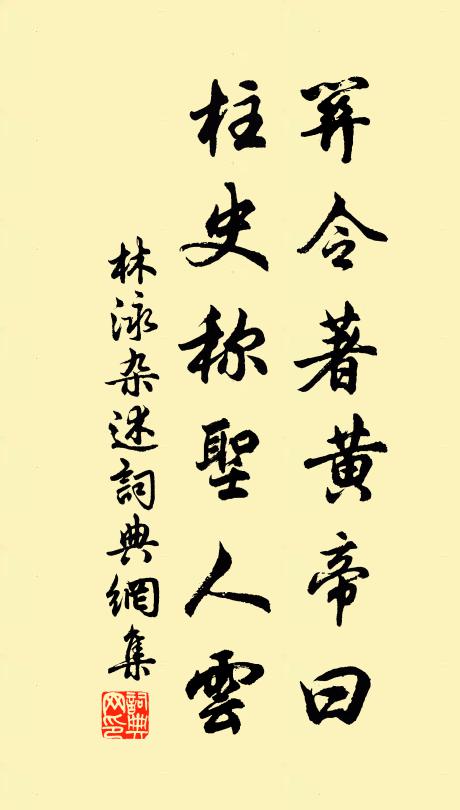 關令著黄帝曰
柱史称聖人雲
林泳杂述詞典網集
詞典网印